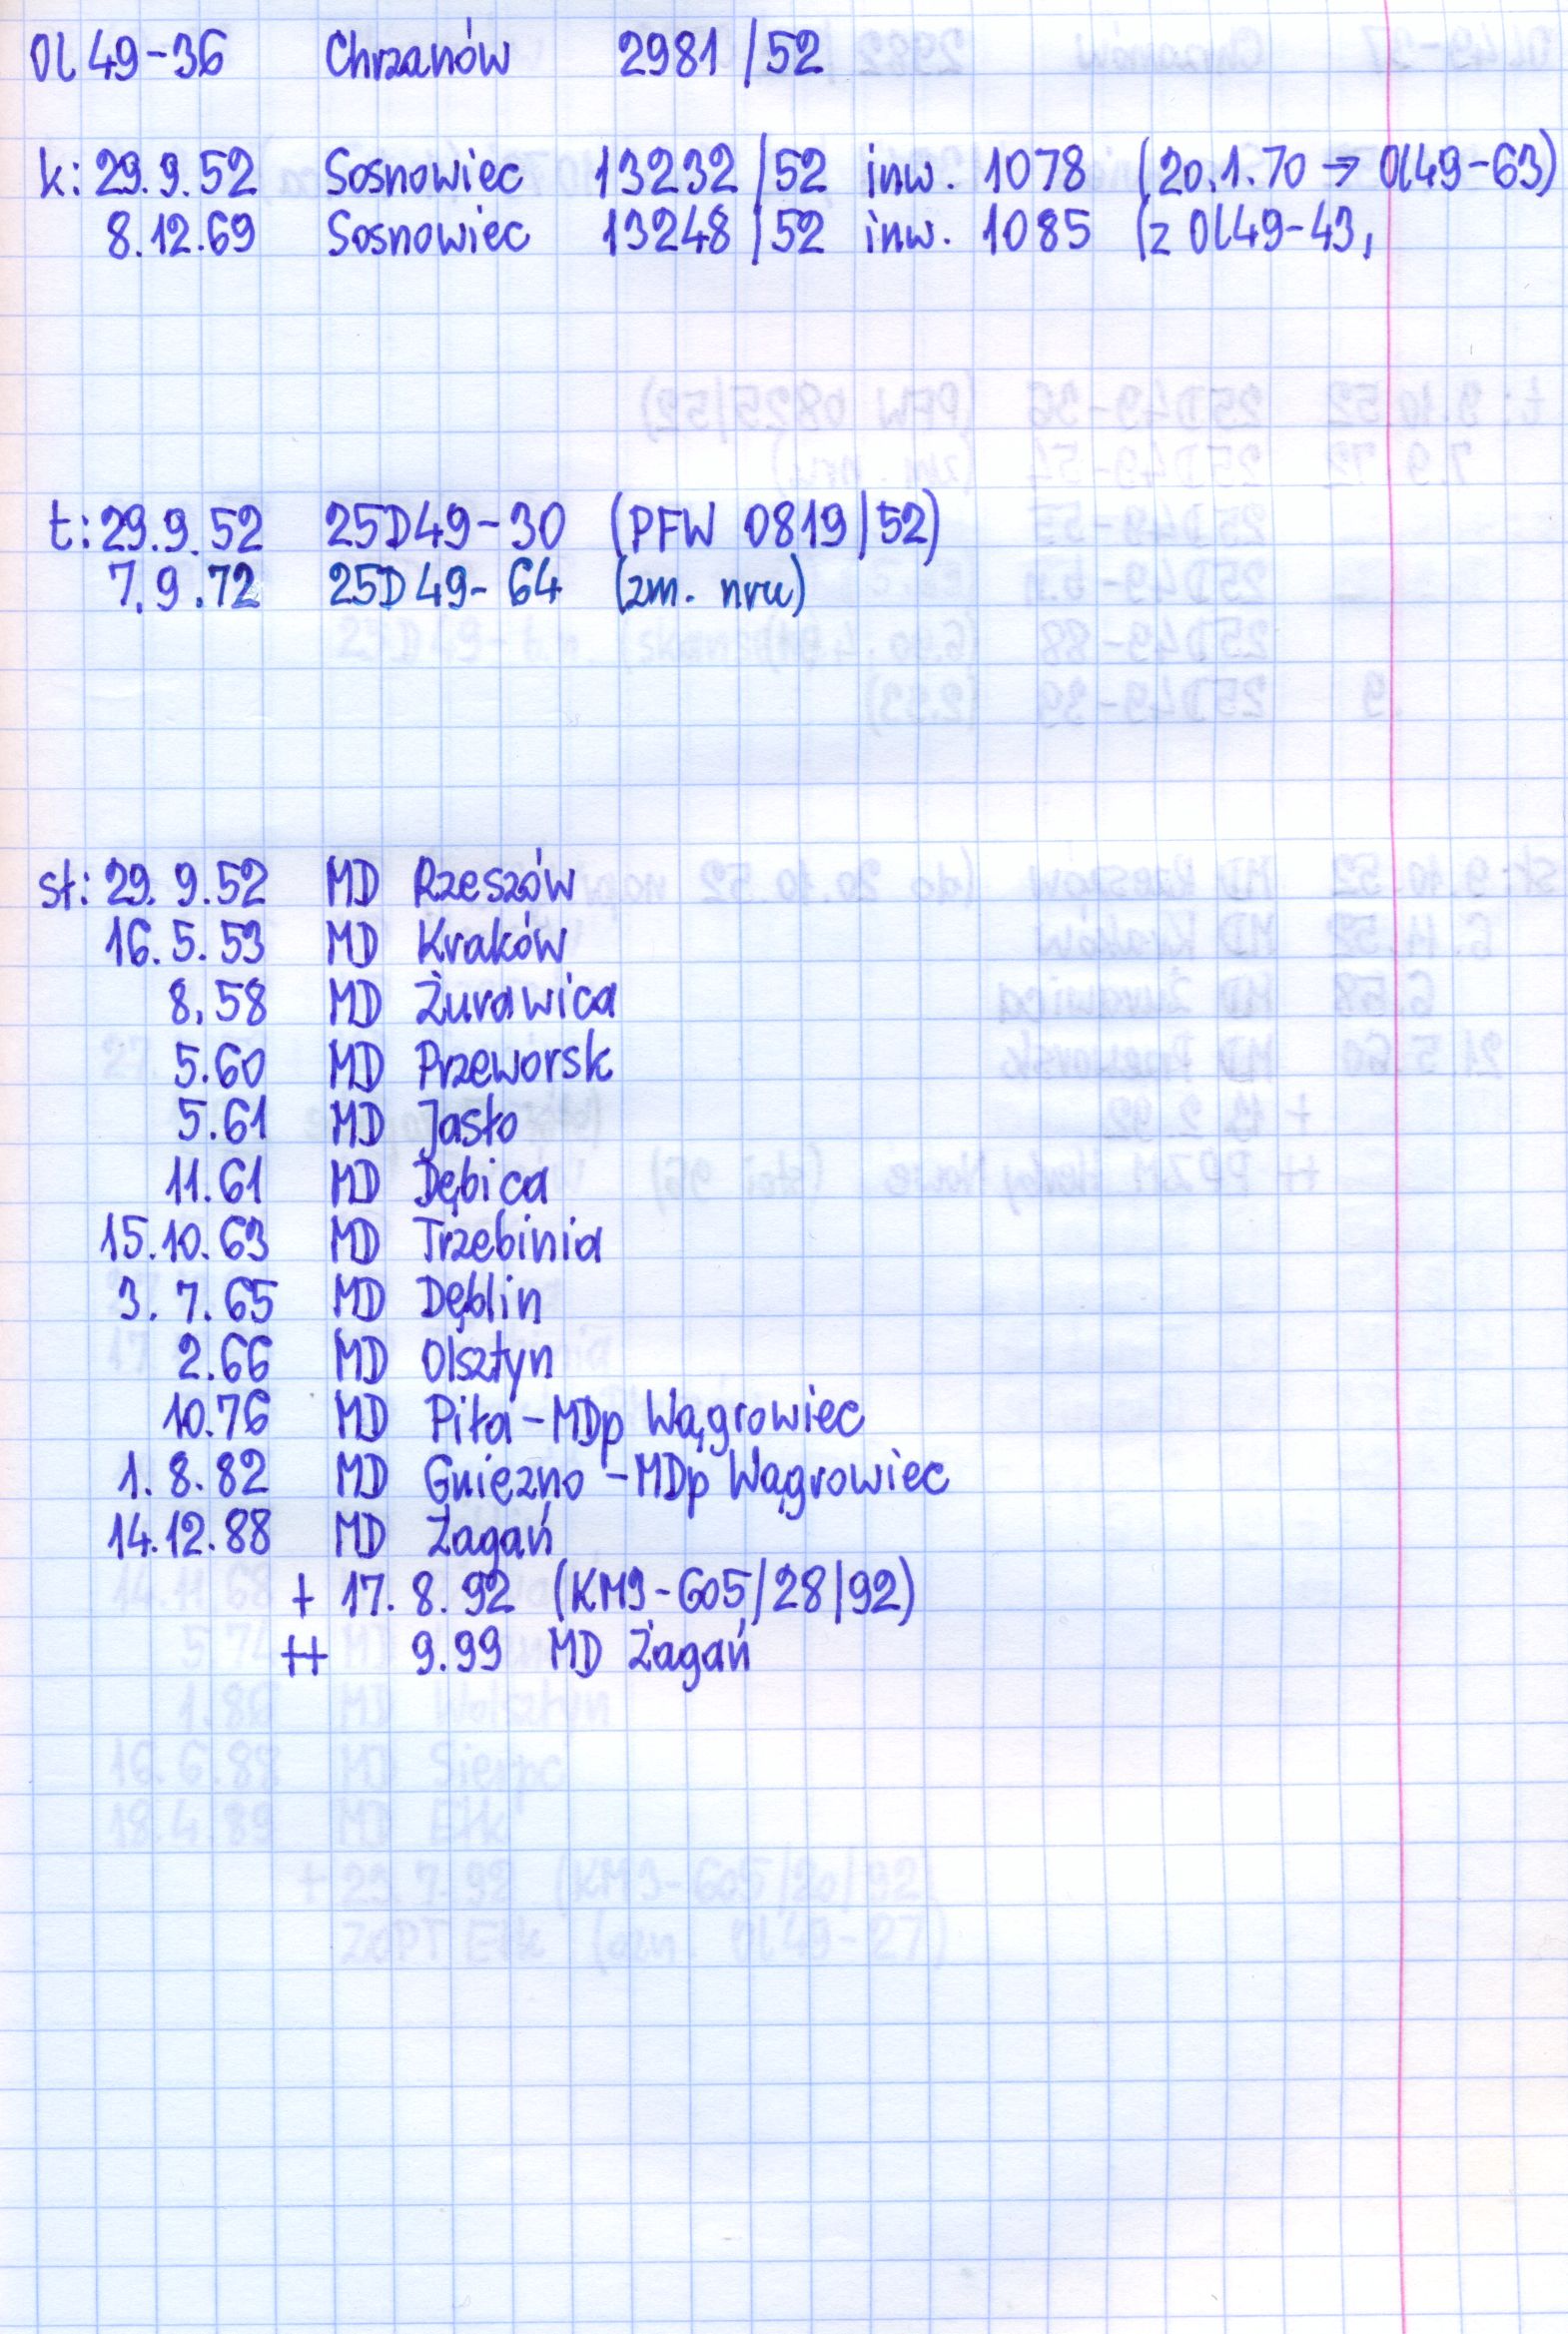 Ol49-36 Chrzanów 2981/52
k: 29.9.52 Sosnowiec 13232/52 inw. 1078 (20.1.70 → Ol49-63)
8.12.69 Sosnowiec 13248/52 inw. 1085 (z Ol49-43,
t: 29.9.52 25D49-30 (PFW 0819/52)
7.9.72 25D49-64 (zm. nru)
st: 29.9.52 MD Rzeszów
16.5.53 MD Kraków
8.58 MD Żurawica
5.60 MD Przeworsk
5.61 MD Jasło
11.61 MD Dębica
15.10.63 MD Trzebinia
3.7.65 MD Dęblin
2.66 MD Olsztyn
10.76 MD Piła-MDp Wągrowiec
1.8.82 MD Gniezno-MDp Wągrowiec
14.12.88 MD Żagań
+ 17.8.92 (KM9-605/28/92)
++ 9.99 MD Żagań